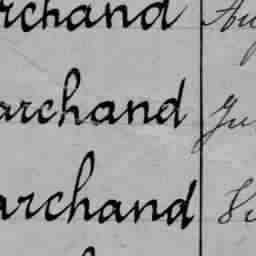 rchand Au
archand Ju
archand Se